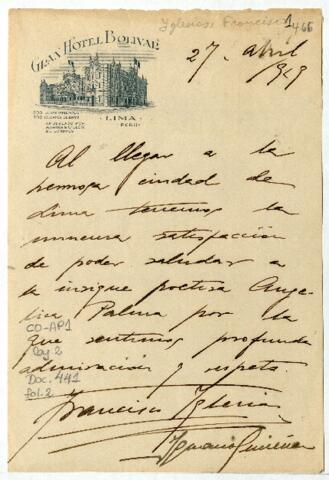 Yglesias, Francisco 1
466
GRAN HOTEL BOLIVAR
LIMA
PERU
27. abril
1929
Al llegar a la
hermosa ciudad de
Lima tenemos la
inmensa satisfacción
de poder saludar a
la insigne poetisa Ange-
lica Palma por la
que sentimos profunda
admiración y respeto.
Francisco Yglesias
Ignacio Giménez
CO-AP1
Caj. 2
Doc. 441
fol. 2